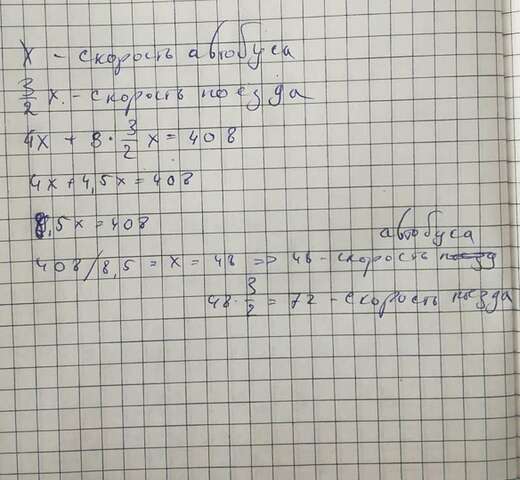 x - скорость автобуса
3/2 x. - скорость поезда
4x + 3 · 3/2 x = 408
4x + 4,5x = 408
8,5x = 408
автобуса
408/8,5 = x = 48 => 48 - скорость поезд
48 · 3/2 = 72 - скорость поезда